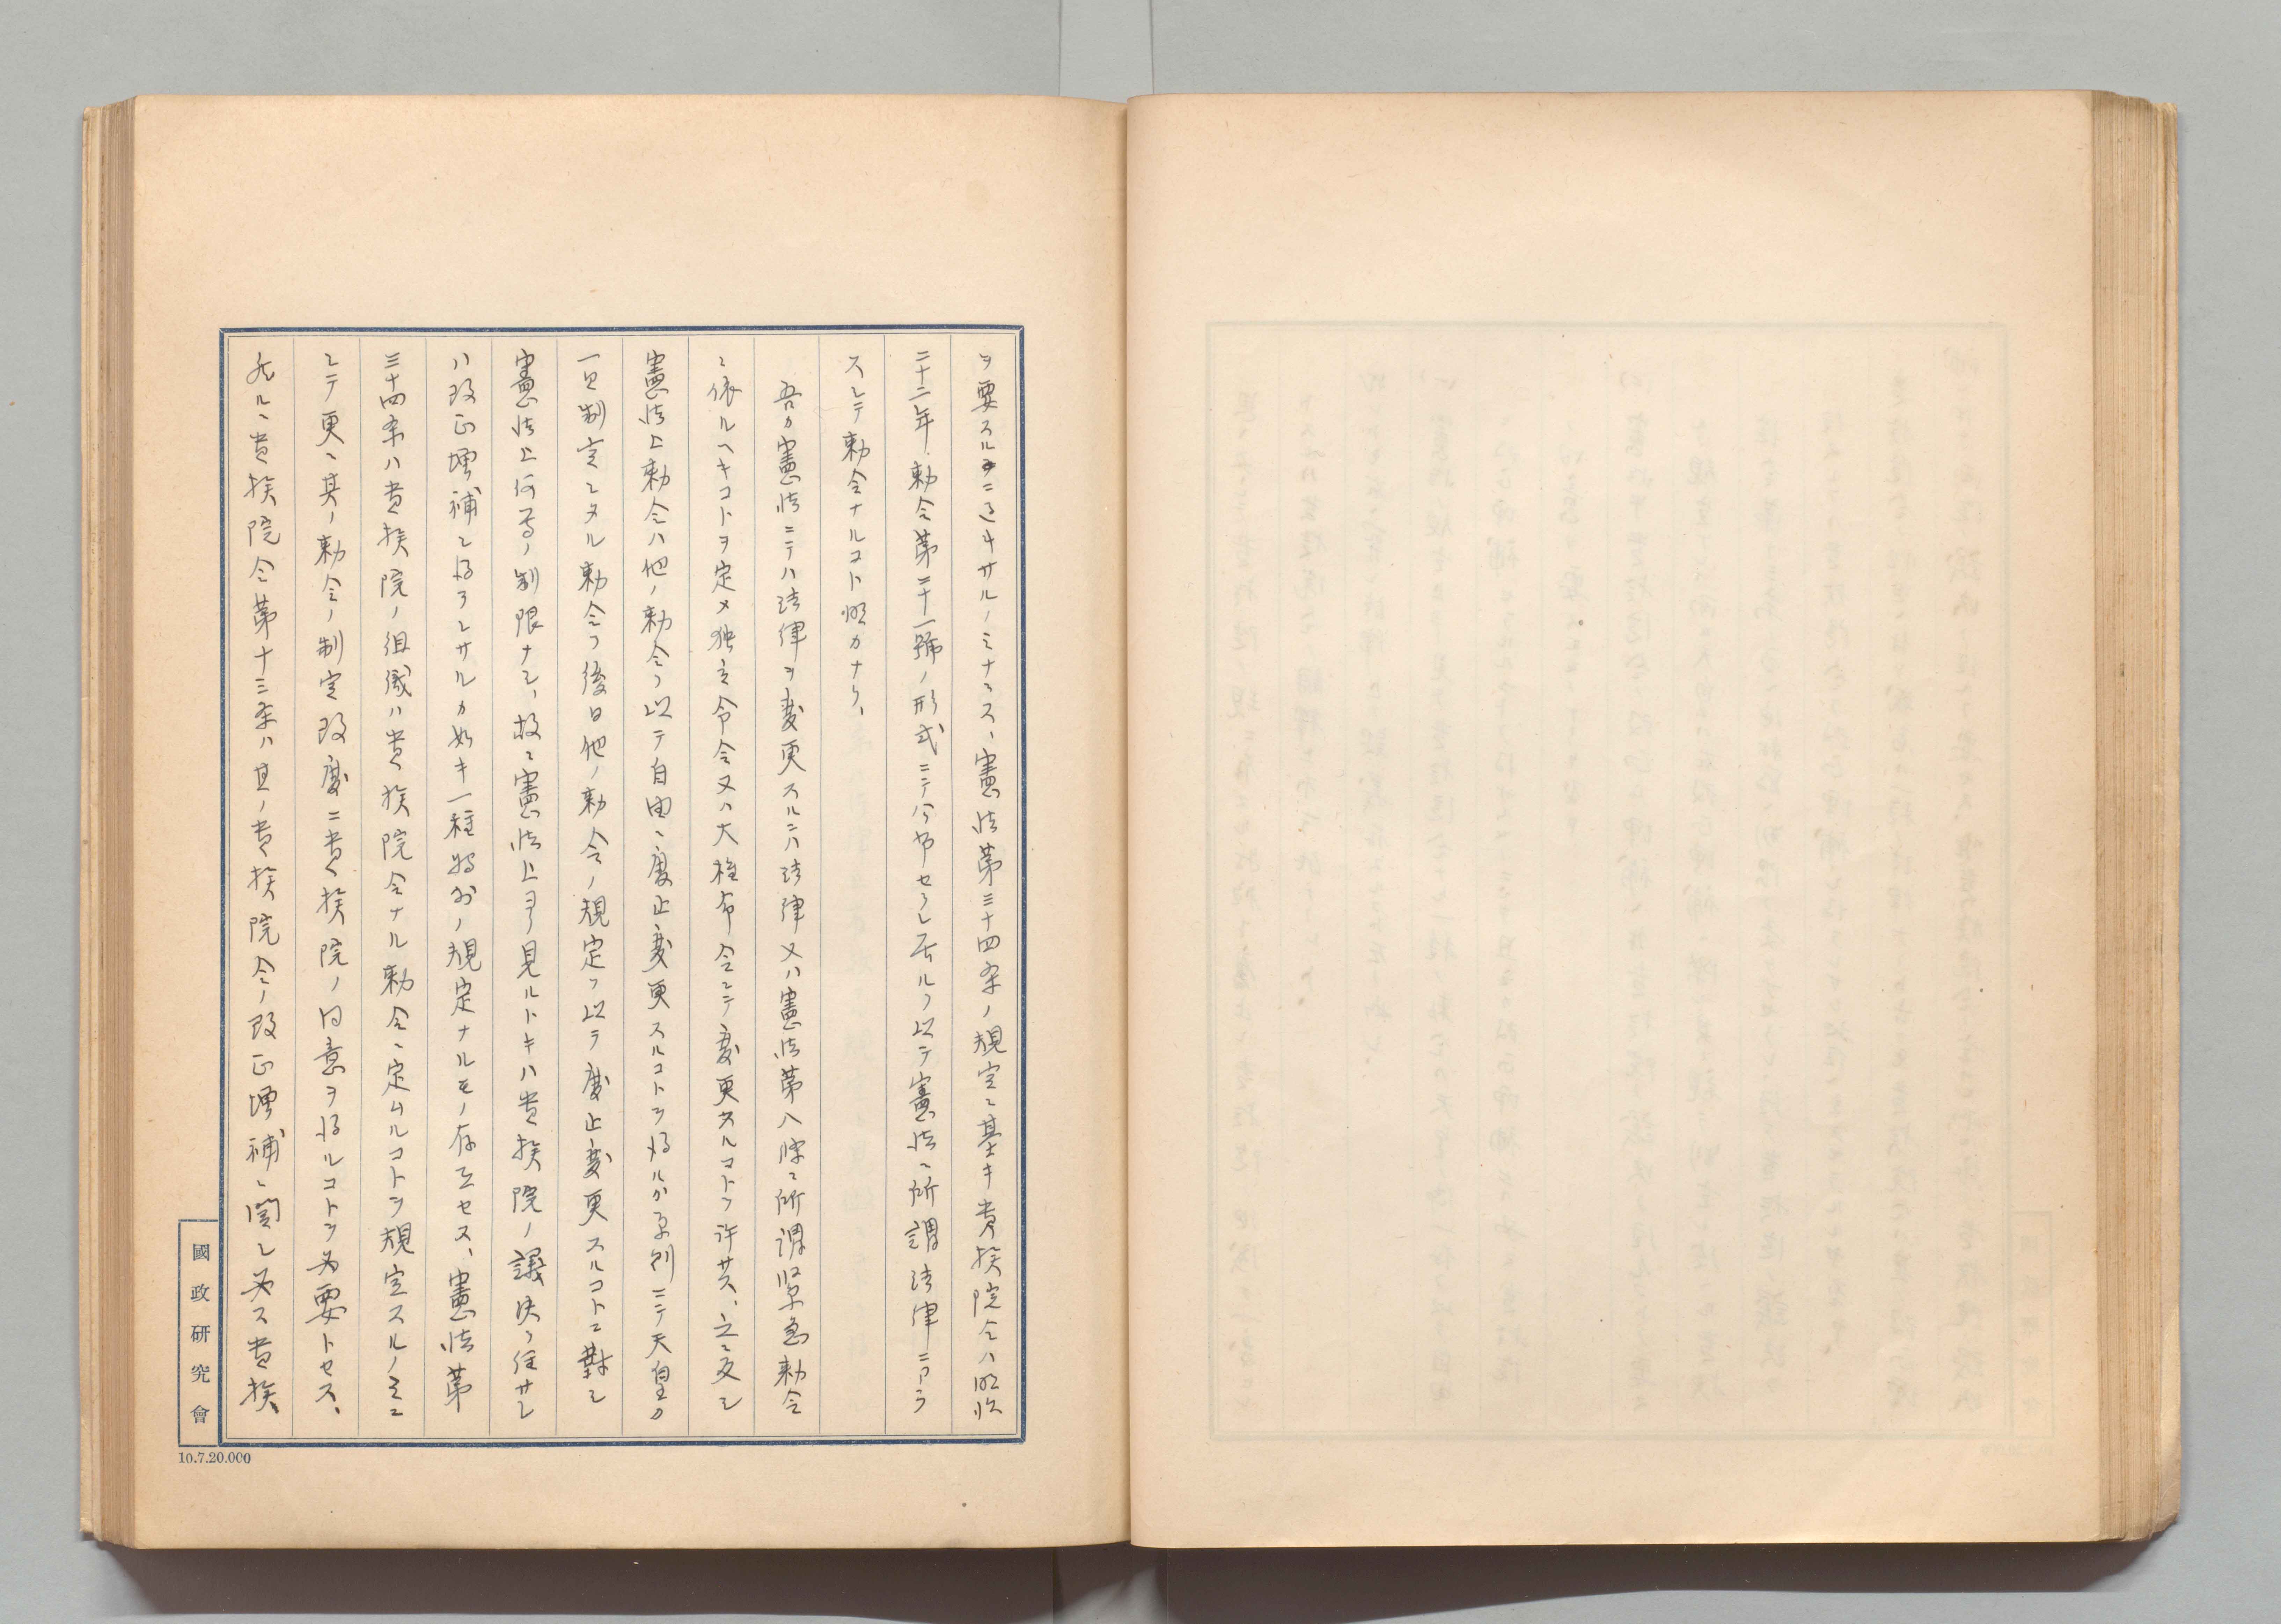 ヲ要スルニ過キサルノミナラス、憲法第三十四条ノ規定ニ基キ貴族院令ハ明治
二十二年勅令第十一號ノ形式ニテ公布セラレ居ルヲ以テ憲法ニ所謂法律ニアラ
スシテ勅令ナルコト明カナリ、
吾カ憲法ニテハ法律ヲ変更スルニハ法律又ハ憲法第八條ニ所謂緊急勅令
ニ依ルヘキコトヲ定メ独立命令又ハ大権命令ニテ変更スルコトヲ許サス、之ニ反シ
憲法上勅令ハ他ノ勅令ヲ以テ自由ニ廃止変更スルコトヲ得ルカ原則ニテ天皇カ
一旦制定シタル勅令ヲ後日他ノ勅令ノ規定ヲ以テ廃止変更スルコトニ對シ
憲法上何等ノ制限ナシ、故ニ憲法上ヨリ見ルトキハ貴族院ノ議決ヲ経サレ
ハ改正増補シ得ラレサルカ如キ一種特別ノ規定ナルモノ存在セス、憲法第
三十四条ハ貴族院ノ組織ハ貴族院令ナル勅令ニ定ムルコトヲ規定スルノミニ
シテ更ニ其ノ勅令ノ制定改廃ニ貴族院ノ同意ヲ得ルコトヲ必要トセス、
然ルニ貴族院令第十三条ハ其ノ貴族院令ノ改正増補ニ関シ必ス貴族
國政研究會
10.7.20.000